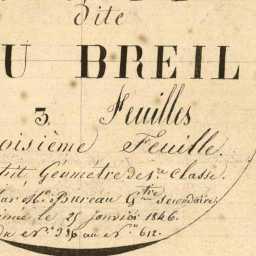 dite
U BREIL
3 Feuilles
oisième Feuille.
Géomètre de 1re Classe.
Mr. Bureau Gtre secondaire
le 25 janvier 1846.
du No. 336 au No. 612.